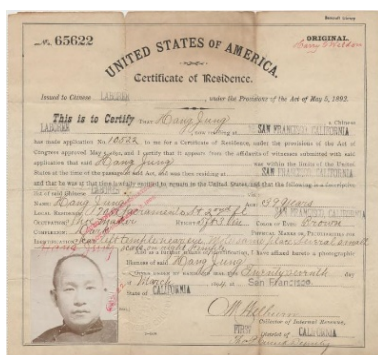 Bancroft Library
No. 65622
ORIGINAL.
UNITED STATES OF AMERICA.
Certificate of Residence.
Issued to Chinese LABORER, under the Provisions of the Act of May 5, 1892.
This is to Certify THAT Hang Jung, a Chinese
LABORER, now residing at SAN FRANCISCO, CALIFORNIA
has made application No. 10532 to me for a Certificate of Residence, under the provisions of the Act of
Congress approved May 5, 1892, and I certify that it appears from the affidavits of witnesses submitted with said
application that said Hang Jung was within the limits of the United
States at the time of the passage of said Act, and was then residing at SAN FRANCISCO, CALIFORNIA
and that he was at that time lawfully entitled to remain in the United States, and that the following is a descriptive
NAME: Hang Jung AGE: 39 years
LOCAL RESIDENCE: Sacramento St 2nd fl SAN FRANCISCO, CALIFORNIA
OCCUPATION: HEIGHT: COLOR OF EYES: Brown
COMPLEXION: Dark PHYSICAL MARKS OR PECULIARITIES FOR
IDENTIFICATION: temple near eye
And as a further means of identification, I have affixed hereto a photographic
likeness of said Hang Jung
day
of March San Francisco
State of CALIFORNIA
Collector of Internal Revenue,
FIRST District of CALIFORNIA
Deputy